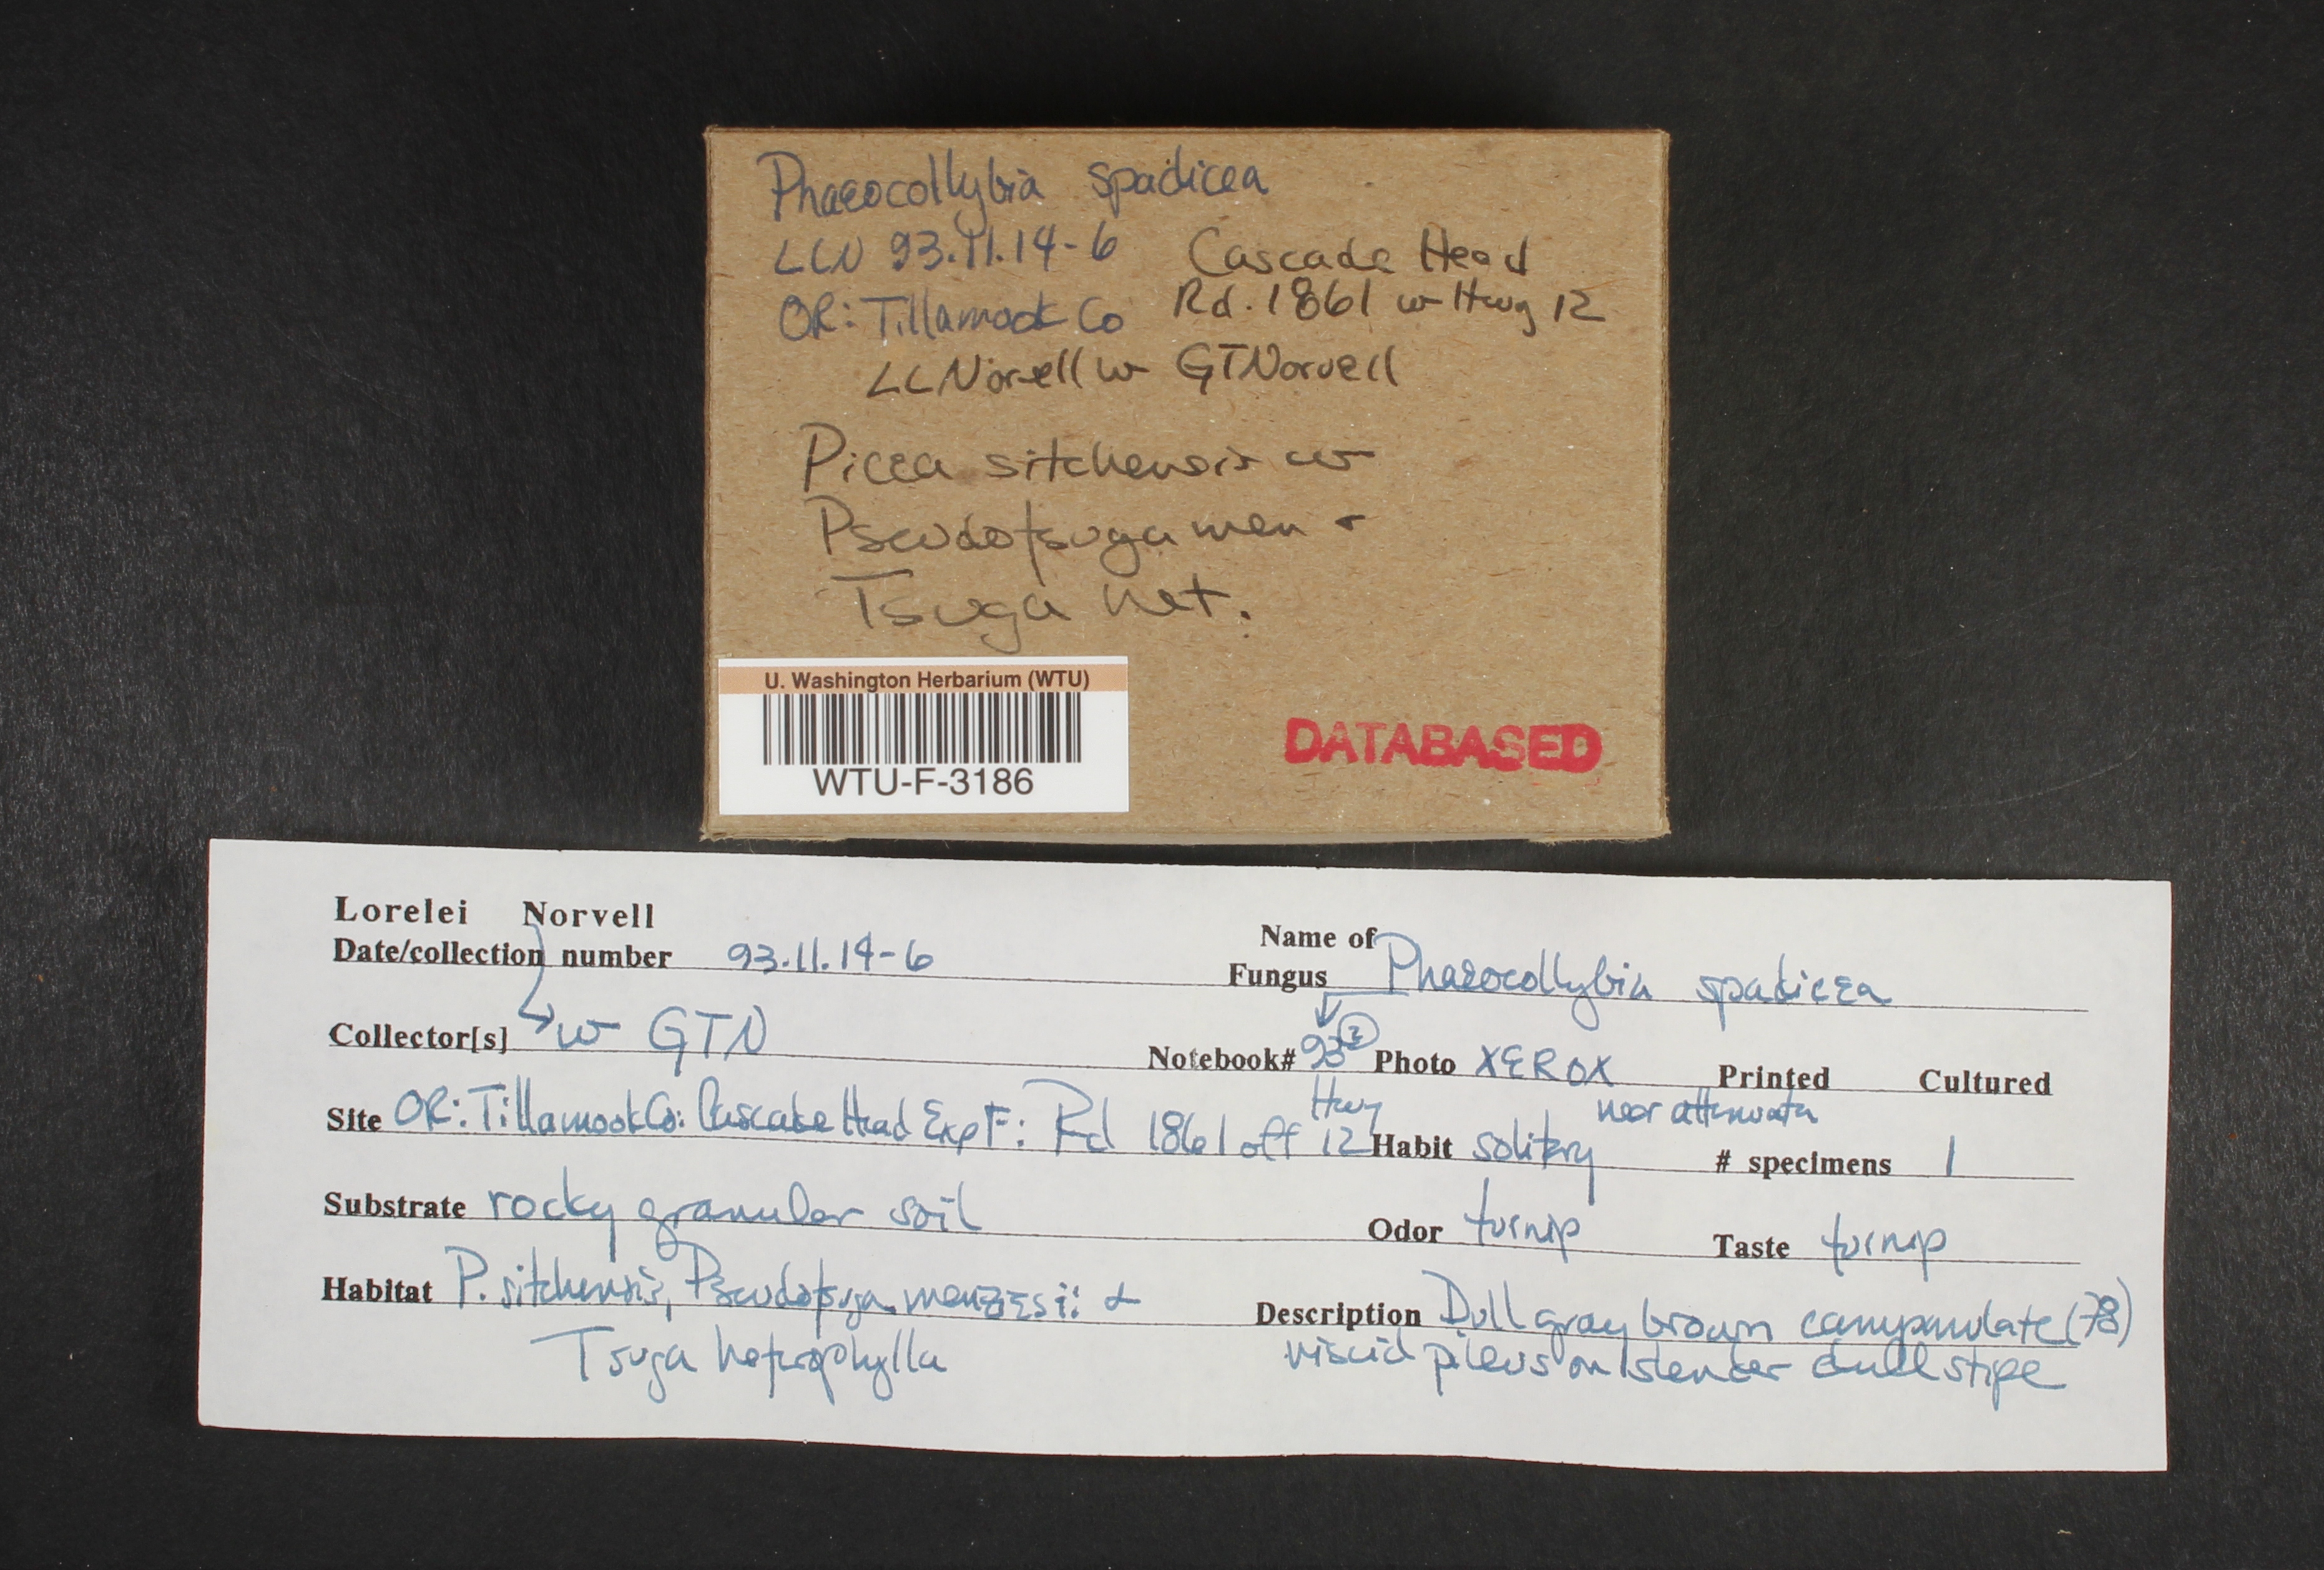 Phaeocollybia spadicea
LLN 93.11.14-6 Cascade Head
OR: Tillamook Co Rd. 1861 w Hwy 12
LLNorvell w GTNorvell
Picea sitchensis w
Pseudotsuga men &
Tsuga het.
U. Washington Herbarium (WTU)
WTU-F-3186
DATABASED
Lorelei Norvell
Date/collection number 93.11.14-6
Name of
Fungus Phaeocollybia spadicea
Collector[s] w GTN
Notebook# 93 ② Photo XEROX Printed Cultured
Site OR: Tillamook Co: Cascade Head Exp F: Rd 1861 off Hwy 12
near attenuata
Habit solitary # specimens 1
Substrate rocky granular soil
Odor turnip Taste turnip
Habitat P. sitchensis, Pseudotsuga menziesii &
Tsuga heterophylla
Description Dull gray brown campanulate (78)
viscid pileus on slender dull stipe